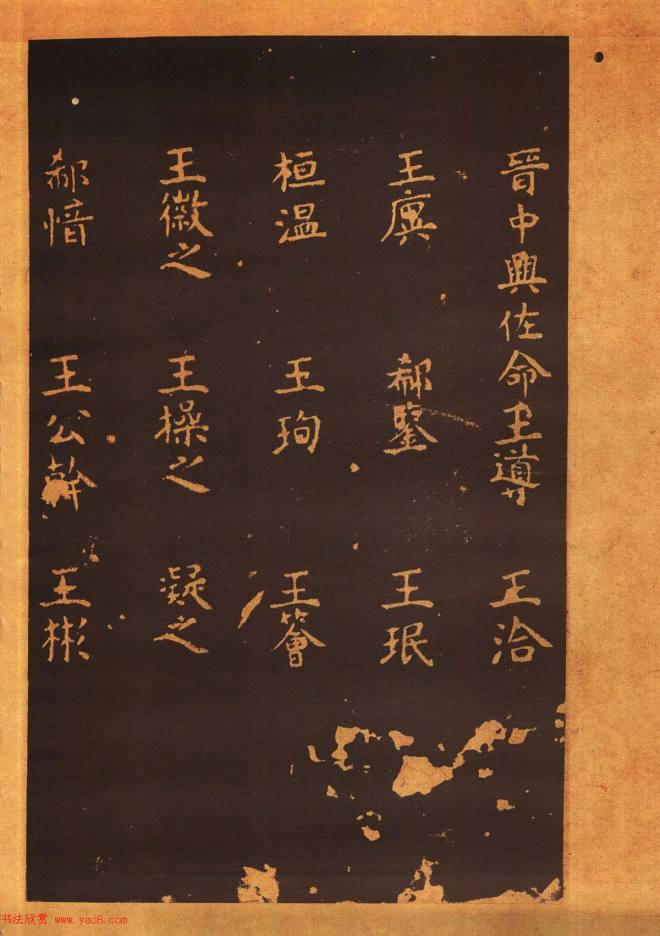 晉中興佐命王導　王洽
王廙　郗鑒　王珉
桓溫　王珣　王薈
王徽之　王操之　凝之
郗愔　王公幹　王彬
书法欣赏 www.yac8.com